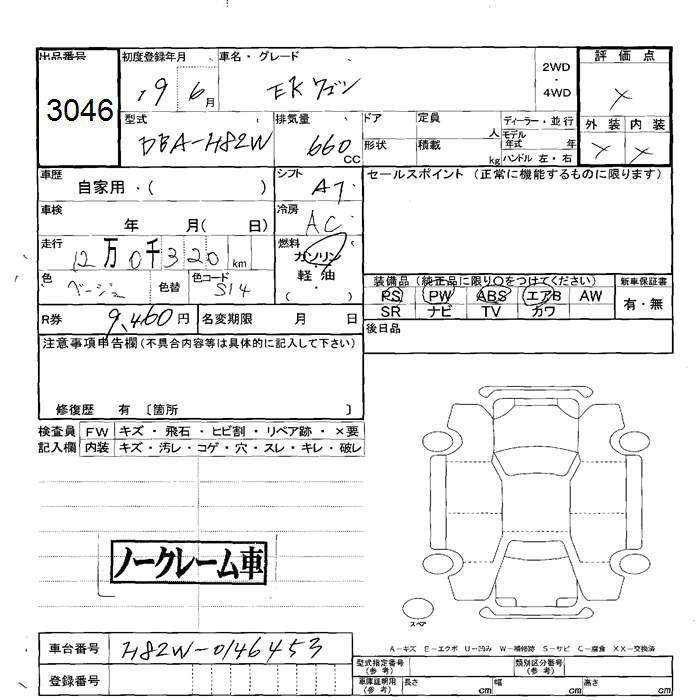 出品番号 初度登録年月 車名・グレード 2WD ・ 4WD 評価点
3046 19 6月 EKワゴン ×
型式 排気量 ドア 定員 ディーラー・並行 外装 内装
DBA-H82W 660 CC 形状 人 積載 kg モデル年式 年 ハンドル 左・右 × ×
車歴 自家用・( ) シフト AT セールスポイント (正常に機能するものに限ります)
車検 年 月( 日) 冷房 AC
走行 12万0千320km 燃料 ガソリン 軽油 ( )
色 ベージュ 色替 色コード S14
装備品 (純正品に限り○をつけてください) 新車保証書
PS PW ABS エアB AW 有・無
SR ナビ TV カワ
R券 9,460円 名変期限 月 日 後日品
注意事項申告欄(不具合内容等は具体的に記入して下さい)
修復歴 有 〔箇所 〕
検査員 FW キズ・飛石・ヒビ割・リペア跡・×要
記入欄 内装 キズ・汚レ・コゲ・穴・スレ・キレ・破レ
ノークレーム車
スペア
A-キズ E-エクボ U-凹み W-補修跡 S-サビ C-腐食 XX-交換済
車台番号 H82W-0146453
登録番号
型式指定番号(参考) 類別区分番号(参考)
車庫証明用(参考) 長さ cm 幅 cm 高さ cm